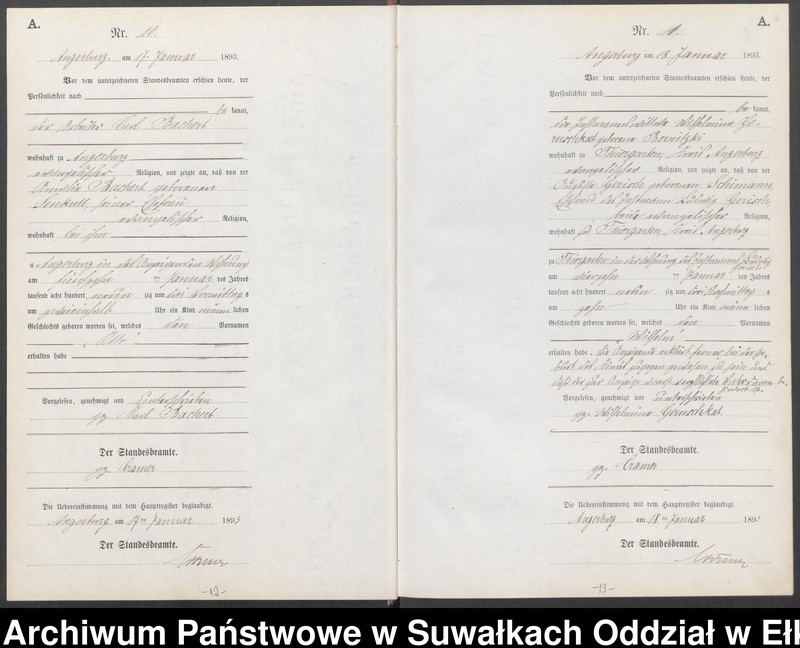 A.
Nr. 10.
Angerburg, am 17. Januar 1893
Vor dem unterzeichneten Standesbeamten erschien heute, der
Persönlichkeit nach
be kannt,
der Arbeiter Karl Bachert
wohnhaft zu Angerburg
evangelischer Religion, und zeigte an, daß von der
Amalie Bachert geborenen
Senkull, seiner Ehefrau
evangelischer Religion,
wohnhaft bei ihm
zu Angerburg in des Anzeigenden Wohnung
am fünfzehn ten Januar des Jahres
tausend acht hundert neunzig und drei Vormittags
um Uhr ein Kind männ lichen
Geschlechts geboren worden sei, welches den Vornamen
Otto
erhalten habe
Vorgelesen, genehmigt und unterschrieben
gz. Karl Bachert
Der Standesbeamte.
gz. Cramer
Die Uebereinstimmung mit dem Hauptregister beglaubigt.
Angerburg am 17ten Januar 1893
Der Standesbeamte.
Cramer
-12-
A.
Nr. 11.
Angerburg am 18. Januar 1893.
Vor dem unterzeichneten Standesbeamten erschien heute, der
Persönlichkeit nach
be kannt,
die Wilhelmine
geborene
wohnhaft zu Thiergarten, Kreis Angerburg
evangelischer Religion, und zeigte an, daß von der
Auguste Gerisch geborenen Schimann,
Ehefrau des Instmann Ludwig Gerisch,
beide evangelischer Religion,
wohnhaft zu Thiergarten, Kreis Angerburg
zu Thiergarten in der Wohnung des Instmanns Ludwig
Gerisch
am vierzehn ten Januar des Jahres
tausend acht hundert neun zig und drei Nachmittags
um zehn Uhr ein Kind männ lichen
Geschlechts geboren worden sei, welches den Vornamen
Wilhelm
erhalten habe. Die Anzeigende erklärt ferner bei der Ge-
burt des Kindes zugegen gewesen zu sein und
daß der zur Anzeige verpflichtete Vater
Vorgelesen, genehmigt und unterschrieben
gz. Wilhelmine
Der Standesbeamte.
gz. Cramer
Die Uebereinstimmung mit dem Hauptregister beglaubigt.
Angerburg am 18ten Januar 189
Der Standesbeamte.
Cramer
-13-
Archiwum Państwowe w Suwałkach Oddział w Ełk